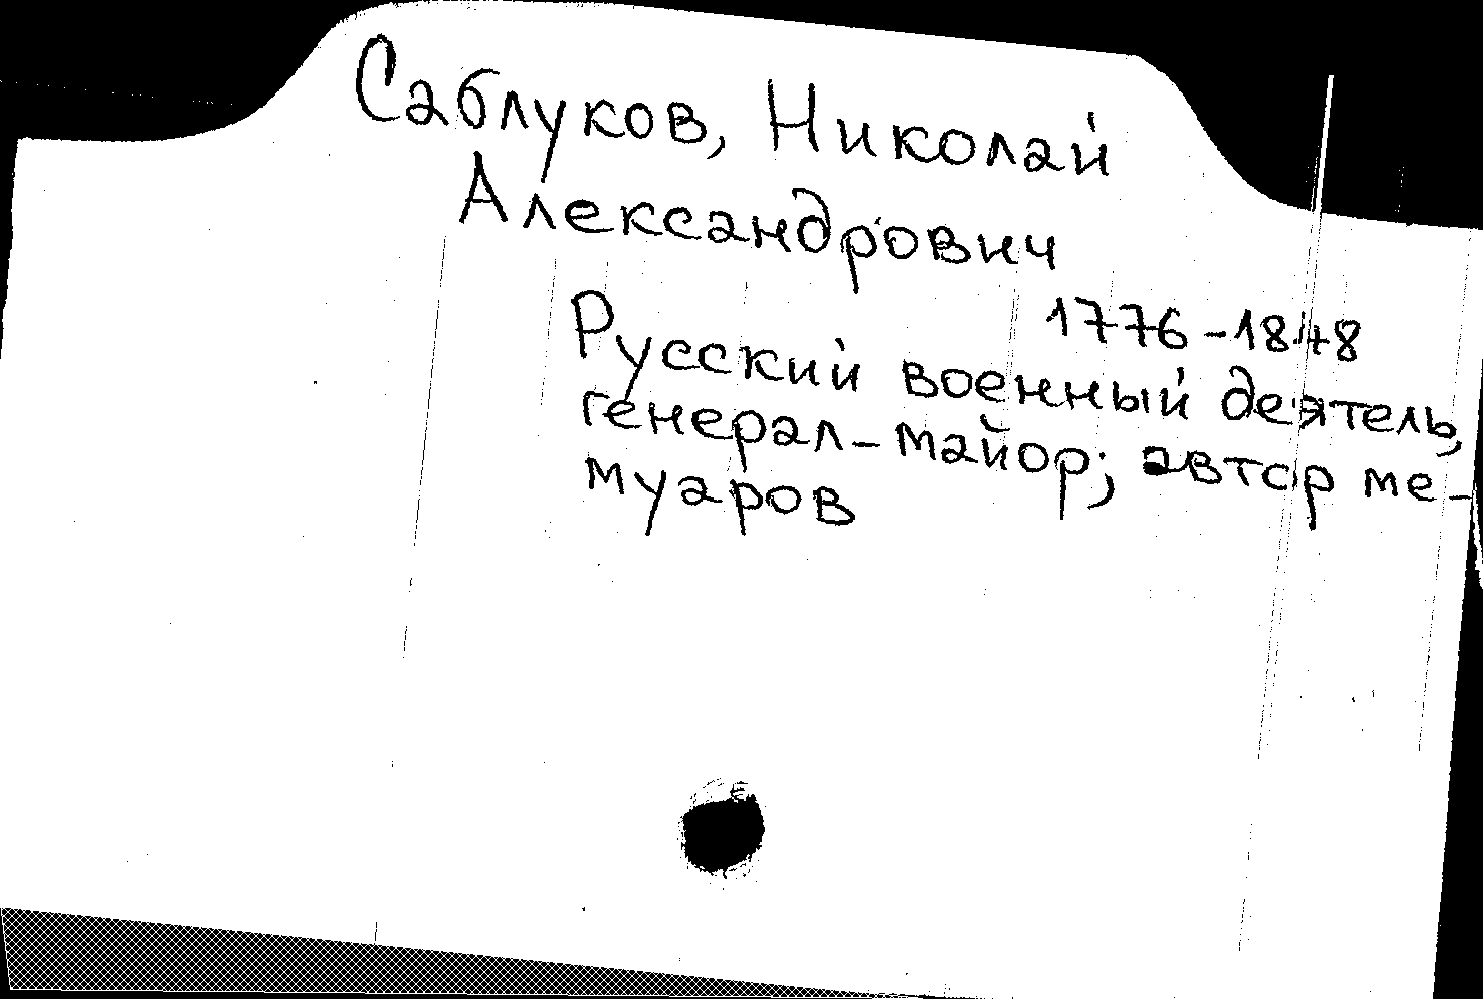 Саблуков, Николай
Александрович
1776-1848
Русский военный деятель,
генерал-майор; автор ме-
муаров